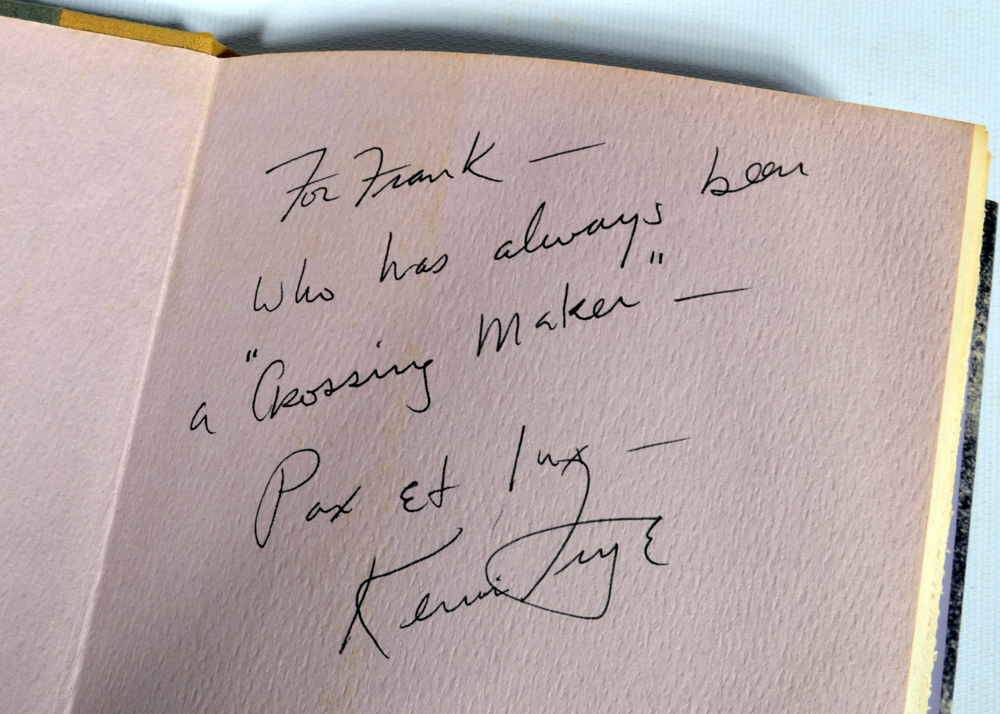 For Frank —
who has always been
a "Crossing Maker" —
Pax Et lux —